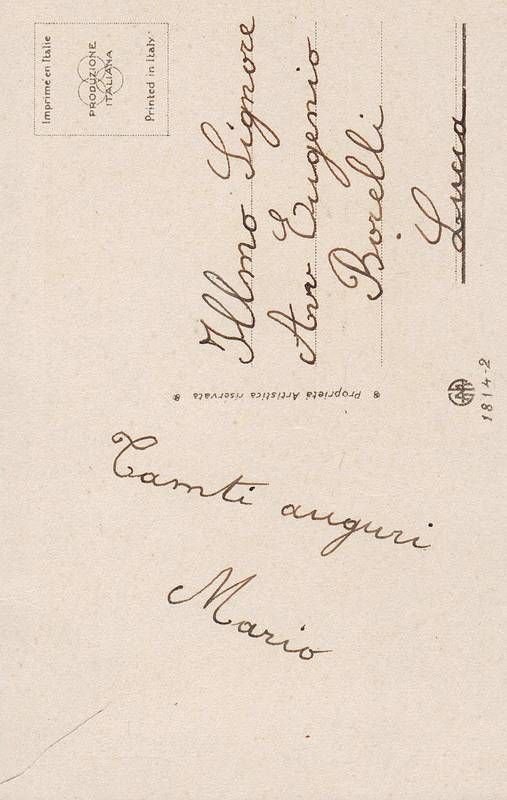 Imprimé en Italie
PRODUZIONE
ITALIANA
Printed in Italy
Illmo Signore
Avv Eugenio
Borelli
Lucca
Proprietà Artistica riservata
1814-2
Tamti auguri
Mario